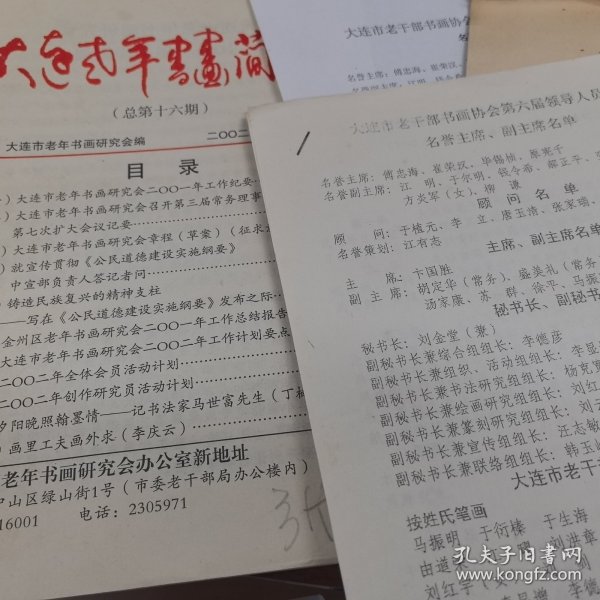 大连老年书画简
(总第十六期)
大连市老年书画研究会编 二〇〇二
目 录
大连市老年书画研究会二〇〇一年工作纪要
大连市老年书画研究会召开第三届常务理事
第七次扩大会议记要
大连市老年书画研究会章程(草案)(征求
就宣传贯彻《公民道德建设实施纲要》
中宣部负责人答记者问
铸造民族复兴的精神支柱
——写在《公民道德建设实施纲要》发布之际
金州区老年书画研究会二〇〇一年工作总结报告
大连市老年书画研究会二〇〇二年工作计划要点
二〇〇二年全体会员活动计划
二〇〇二年创作研究员活动计划
夕阳晚照翰墨情——记书法家马世富先生(丁
画里工夫画外求(李庆云)
老年书画研究会办公室新地址
中山区绿山街1号(市委老干部局办公楼内)
16001 电话:2305971
大连市老干部书画协会
名誉主席:傅忠海、崔荣汉、
大连市老干部书画协会第六届领导人员
名誉主席、副主席名单
名誉主席:傅忠海、崔荣汉、毕锡桢、原宪千
名誉副主席:江 明、于尔明、钱令希、邵正午、
方炎军(女)、柳 谦
顾 问 名 单
顾 问:于植元、李 立、唐玉浩、张家瑞、
名誉策划:江有志
主席、副主席名单
主 席:卞国胜
副 主 席:胡定华(常务)、盛美礼(常务)
汤家康、苏 群、徐平、马振
秘书长、副秘书
秘书长:刘金堂(兼)
副秘书长兼综合组组长:李德彦
副秘书长兼组织、活动组组长:李显
副秘书长兼书法研究组组长:杨克
副秘书长兼绘画研究组组长:刘
副秘书长兼篆刻研究组组长:刘云
副秘书长兼宣传组组长:江志敏
副秘书长兼联络组组长:韩玉
大连市老干
按姓氏笔画
马振明 于衍榛 于生海
由道
刘洪章
刘红宇
李德
孔夫子旧书网
www.kongfz.com